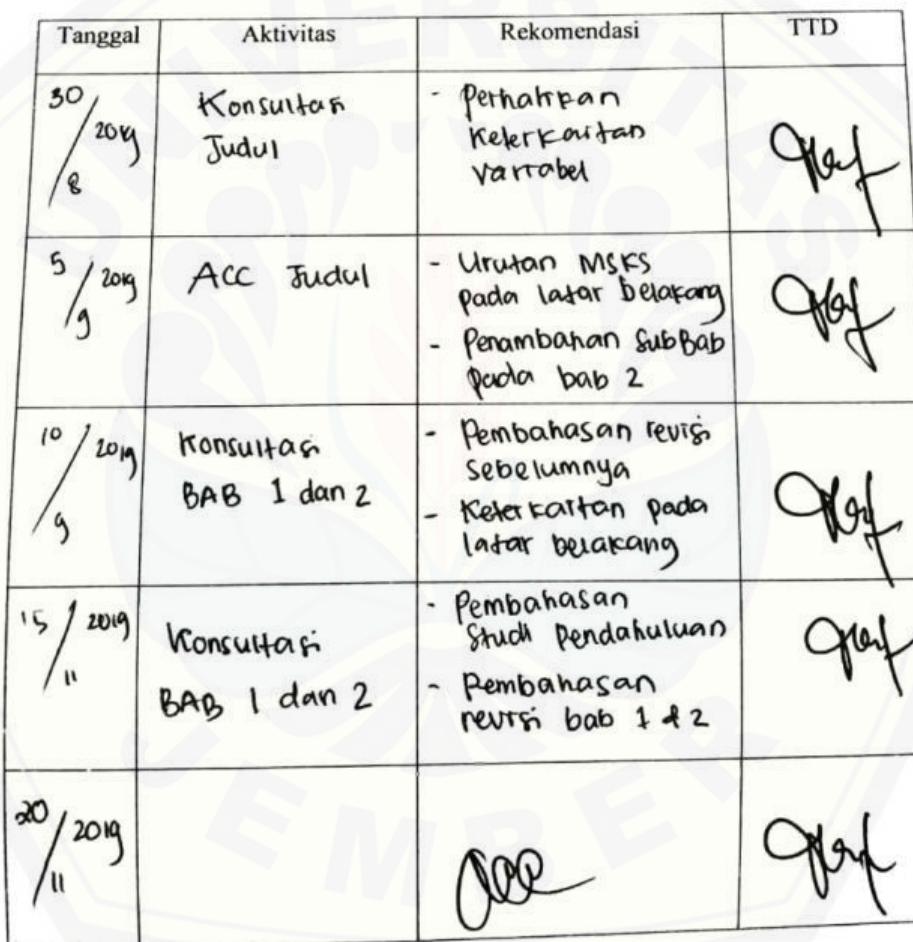 Tanggal Aktivitas Rekomendasi TTD
30/8 2019 Konsultasi Judul
- Perhatikan
Keterkaitan
variabel
5/9 2019 ACC Judul
- Urutan MSKS
pada latar belakang
- Penambahan SubBab
pada bab 2
10/9 2019 Konsultasi
BAB 1 dan 2
- Pembahasan revisi
sebelumnya
- Keterkaitan pada
latar belakang
15/11 2019 Konsultasi
BAB 1 dan 2
- Pembahasan
Studi Pendahuluan
- Pembahasan
revisi bab 1 & 2
20/11 2019
acc
UNIVERSITAS
JEMBER